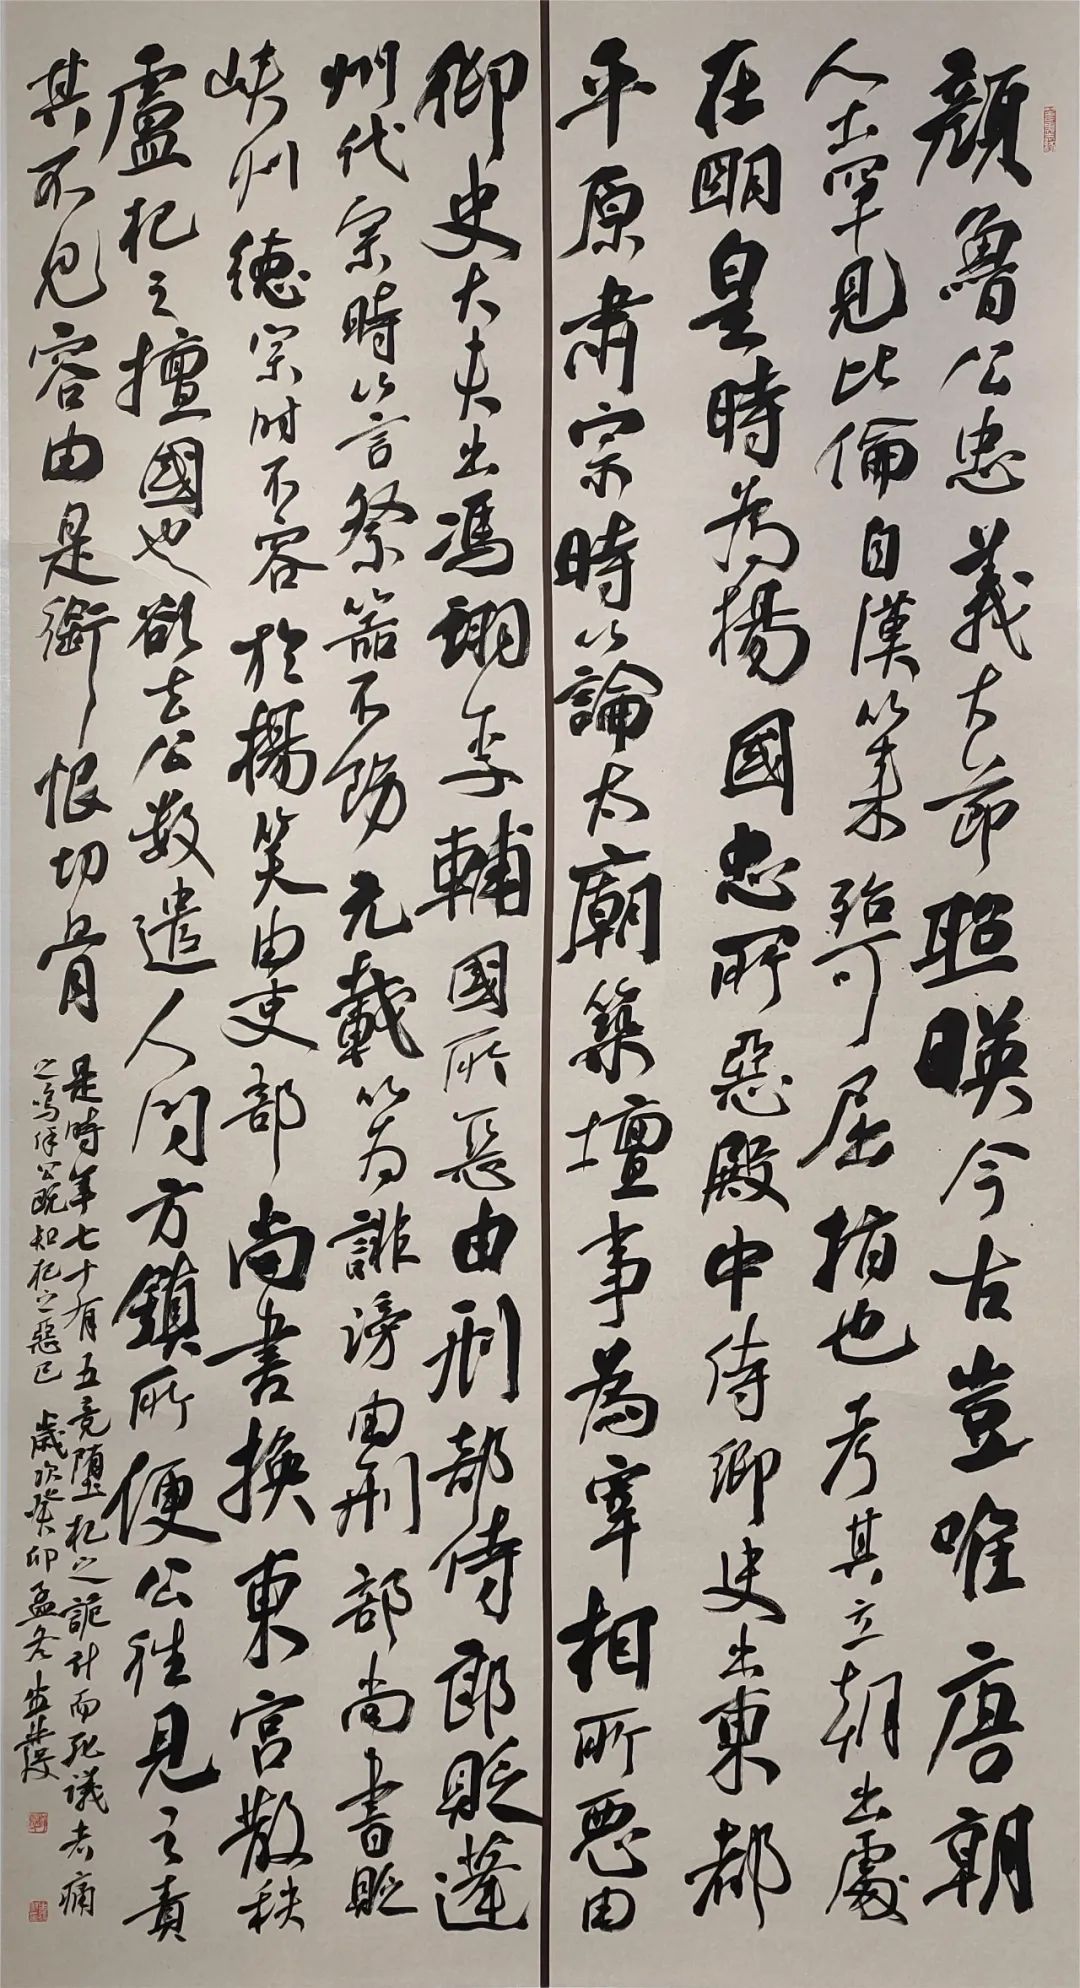 顏魯公忠義大節照暎今古豈唯唐朝
人士罕見比倫自漢以来殆可屈指也考其立朝出處
在明皇時為楊國忠所惡殿中侍御史出東都
平原肅宗時以論太廟築壇事為宰相所惡由
御史大夫出馮翊李輔國所惡由刑部侍郎貶蓬
州代宗時以言祭器不飭元載以为誹謗由刑部尚書貶
峡州德宗时不容於楊炎由吏部尚書換東宮散秩
盧杞之擅國也欲去公数遣人问方鎮所便公往見之責
其不見容由是銜恨切骨
是時年七十有五竟墮杞之詭計而死議者痛
之嗚呼公既知杞之惡已 歲次癸卯孟冬